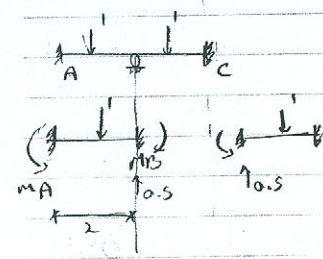 1 1
A C
1 1
MA MB 0.5 0.5
2